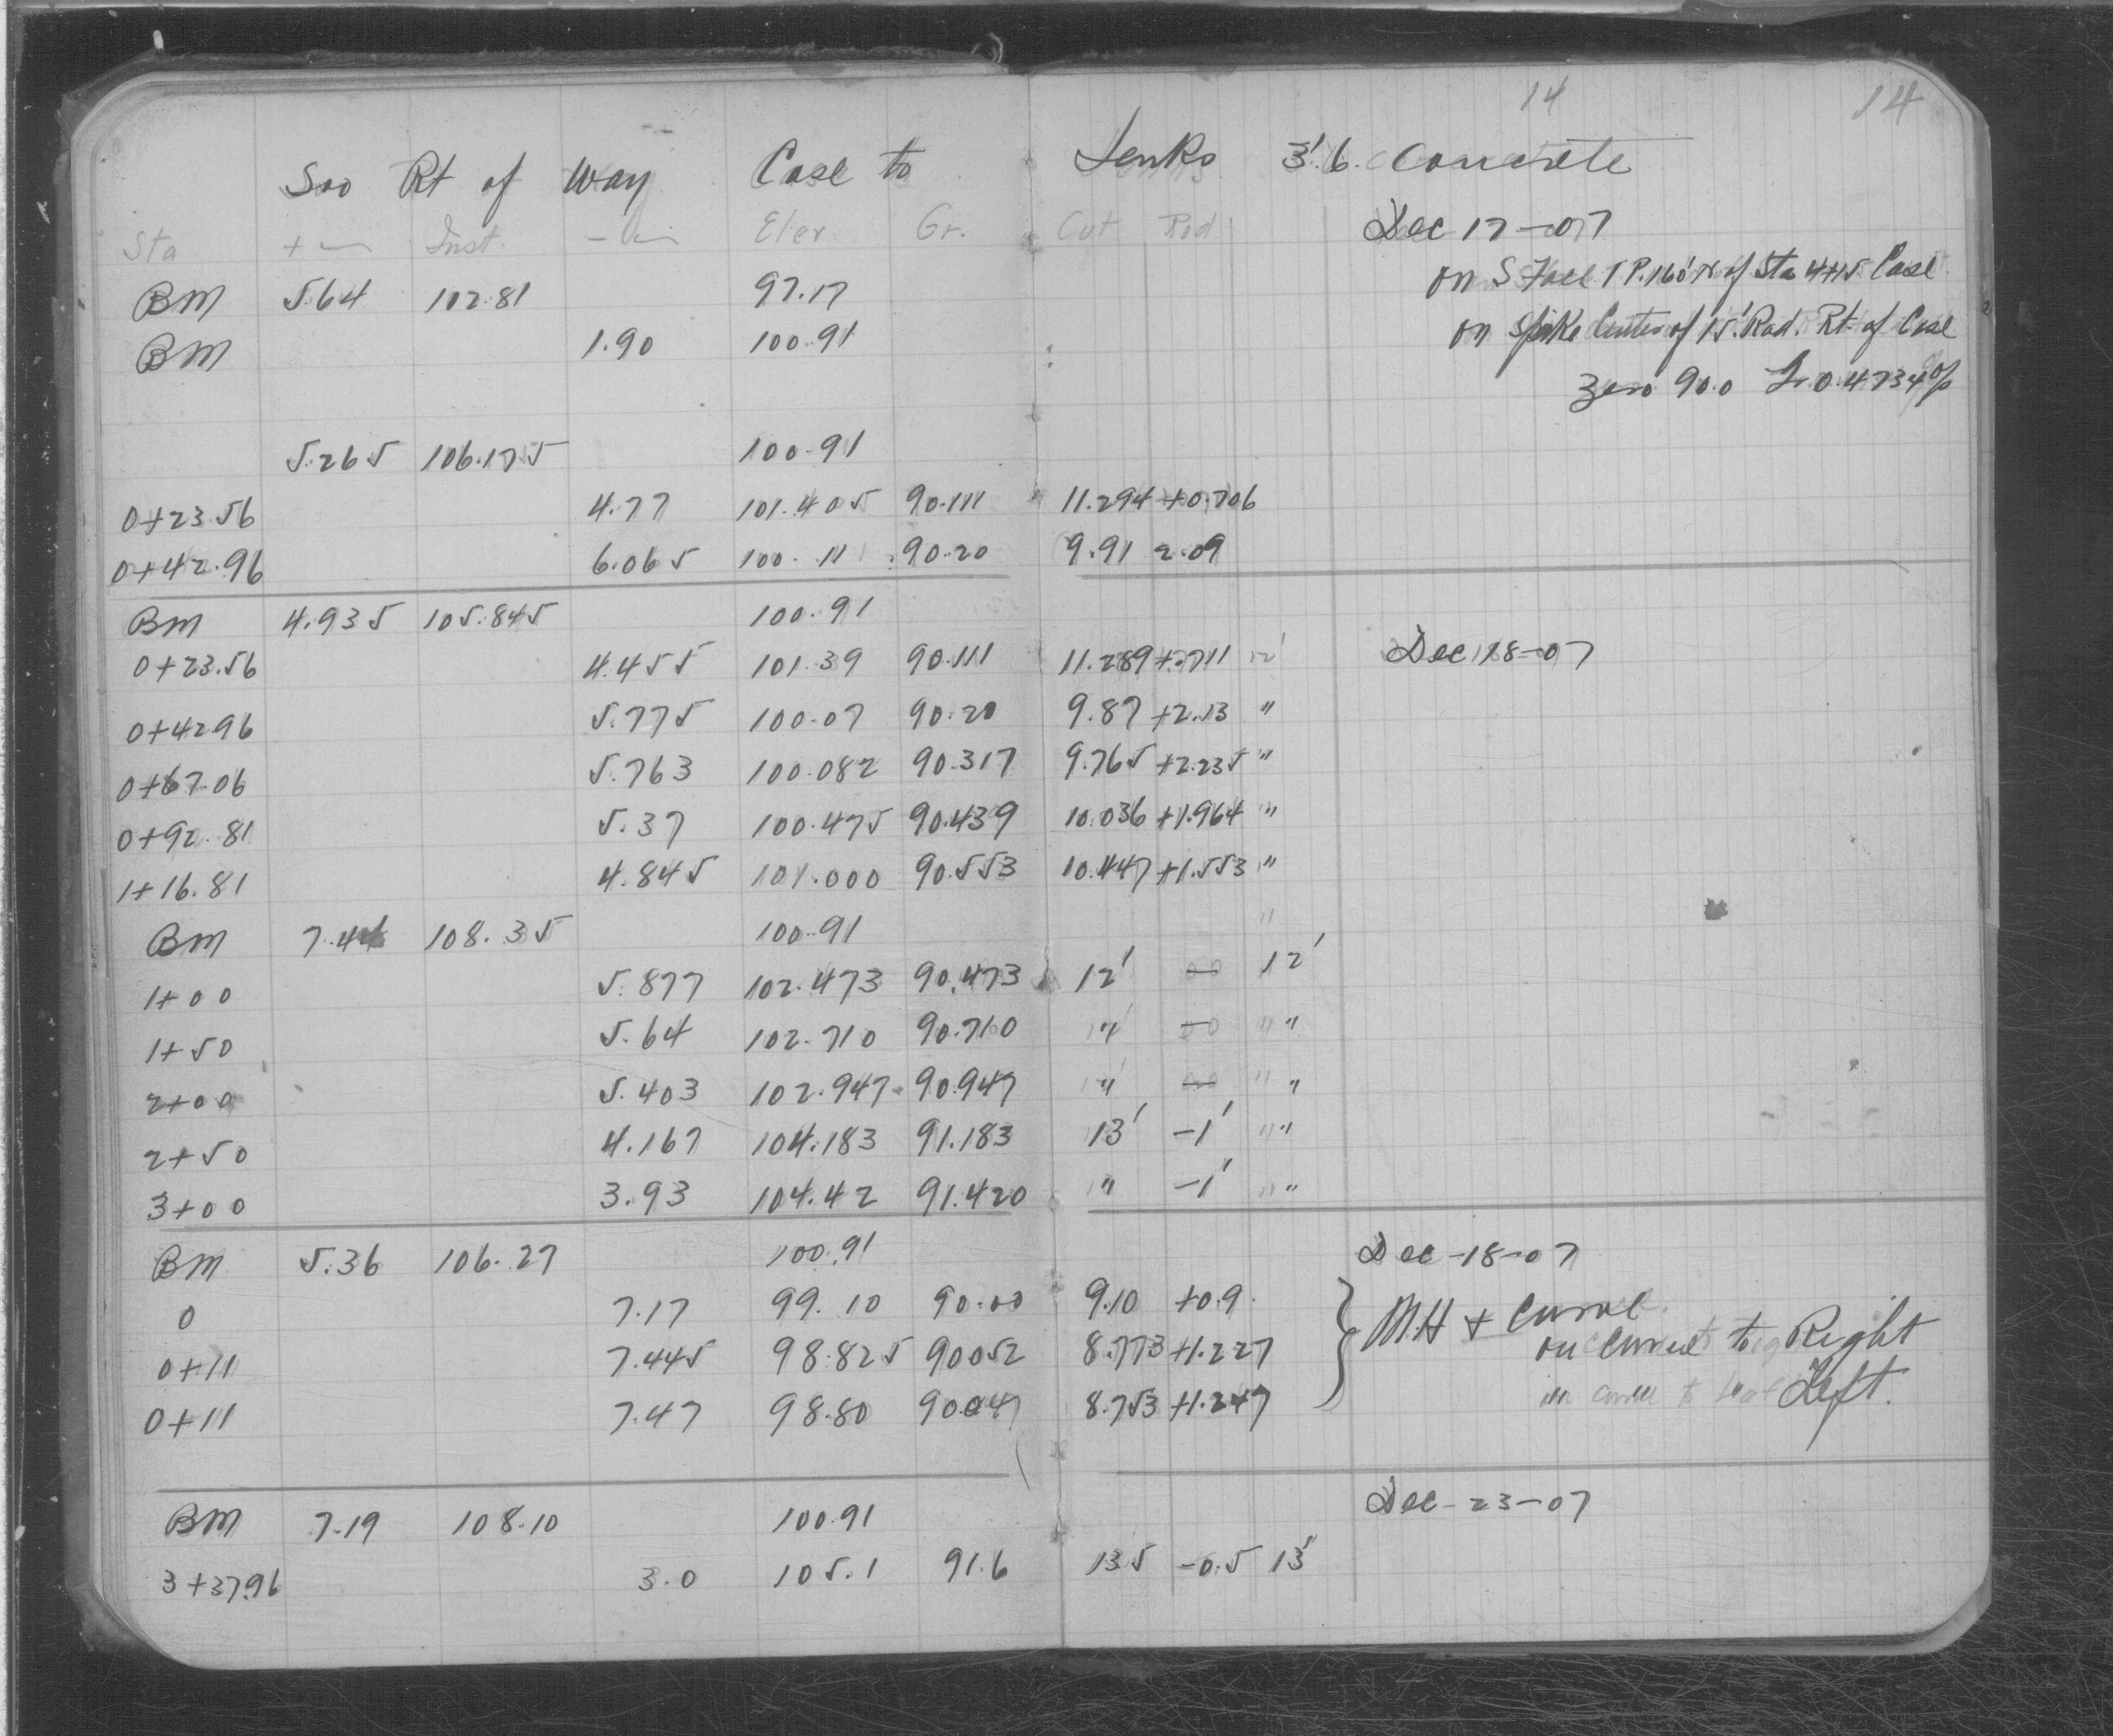 14 14
Soo Rt of Way Case to Jenks 3'.6. Concrete
Sta + Inst. - Elev Gr. Cut Rod Dec 17-07
BM 5.64 102.81 97.17 on S Face T.P. 160' N of Sta 4+15 Case
BM 1.90 100.91 on Spike Center of 15' Rad. Rt of Case
Zero 90.0 Gr 0.4734%
5.265 106.175 100.91
0+23.56 4.77 101.405 90.111 11.294 +0.706
0+42.96 6.065 100.11 90.20 9.91 2.09
BM 4.935 105.845 100.91
0+23.56 4.455 101.39 90.111 11.289 +.711 12' Dec 18-07
0+42.96 5.775 100.07 90.20 9.87 +2.13 "
0+67.06 5.763 100.082 90.317 9.765 +2.235 "
0+92.81 5.37 100.475 90.439 10.036 +1.964 "
1+16.81 4.845 101.000 90.553 10.447 +1.553 "
BM 7.44 108.35 100.91 "
1+00 5.877 102.473 90.473 12' 00 12'
1+50 5.64 102.710 90.710 " 00 " "
2+00 5.403 102.947 90.947 " 00 " "
2+50 4.167 104.183 91.183 13' -1' " "
3+00 3.93 104.42 91.420 " -1' " "
BM 5.36 106.27 100.91 Dec-18-07
0 7.17 99.10 90.00 9.10 +0.9 M.H + Curve
0+11 7.445 98.825 90.052 8.773 +1.227 on Curve to Right
0+11 7.47 98.80 90.047 8.753 +1.247 on curve to Left.
BM 7.19 108.10 100.91 Dec-23-07
3+37.96 3.0 105.1 91.6 13.5 -0.5 13'